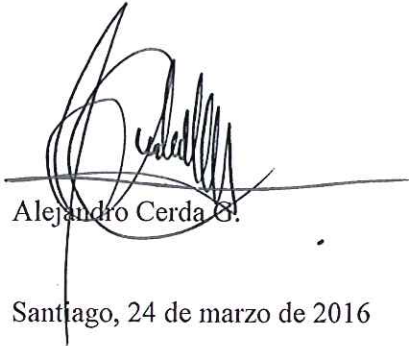 Alejandro Cerda G.
Santiago, 24 de marzo de 2016